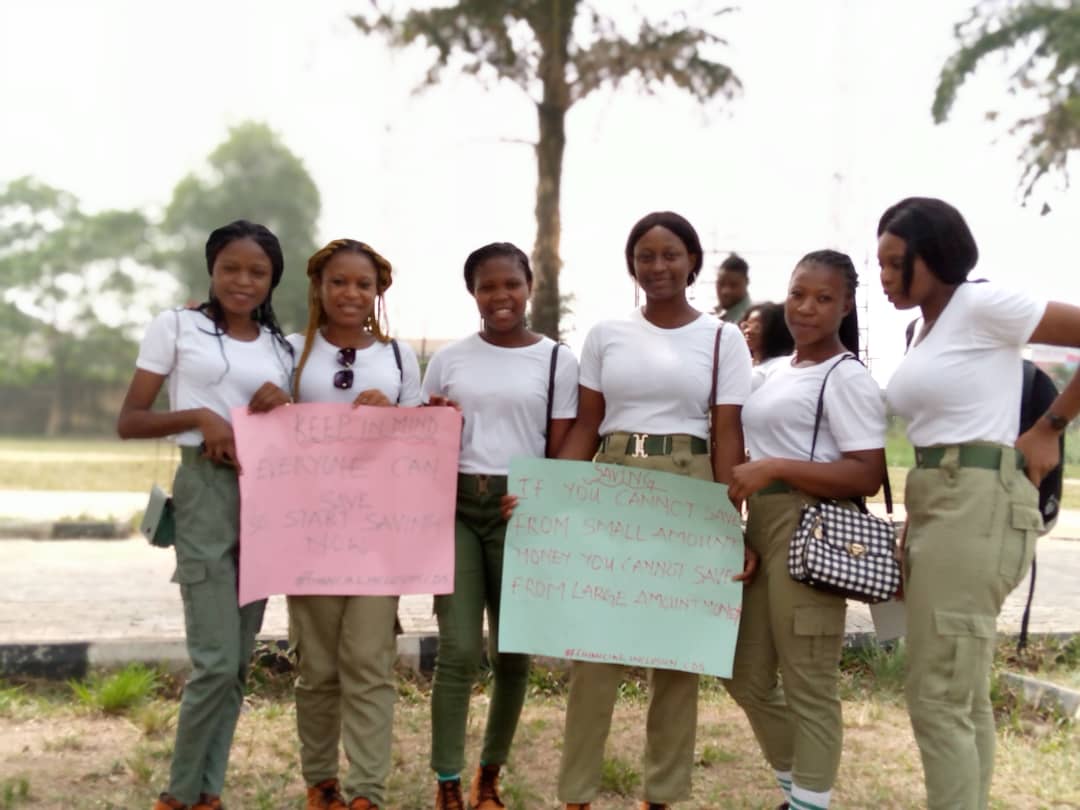 KEEP IN MIND
EVERYONE CAN
SAVE
START SAVING
NOW
#FINANCIAL INCLUSION CDS
SAVING
IF YOU CANNOT SAVE
FROM SMALL AMOUNT
MONEY YOU CANNOT SAVE
FROM LARGE AMOUNT MONEY
#FINANCIAL INCLUSION CDS